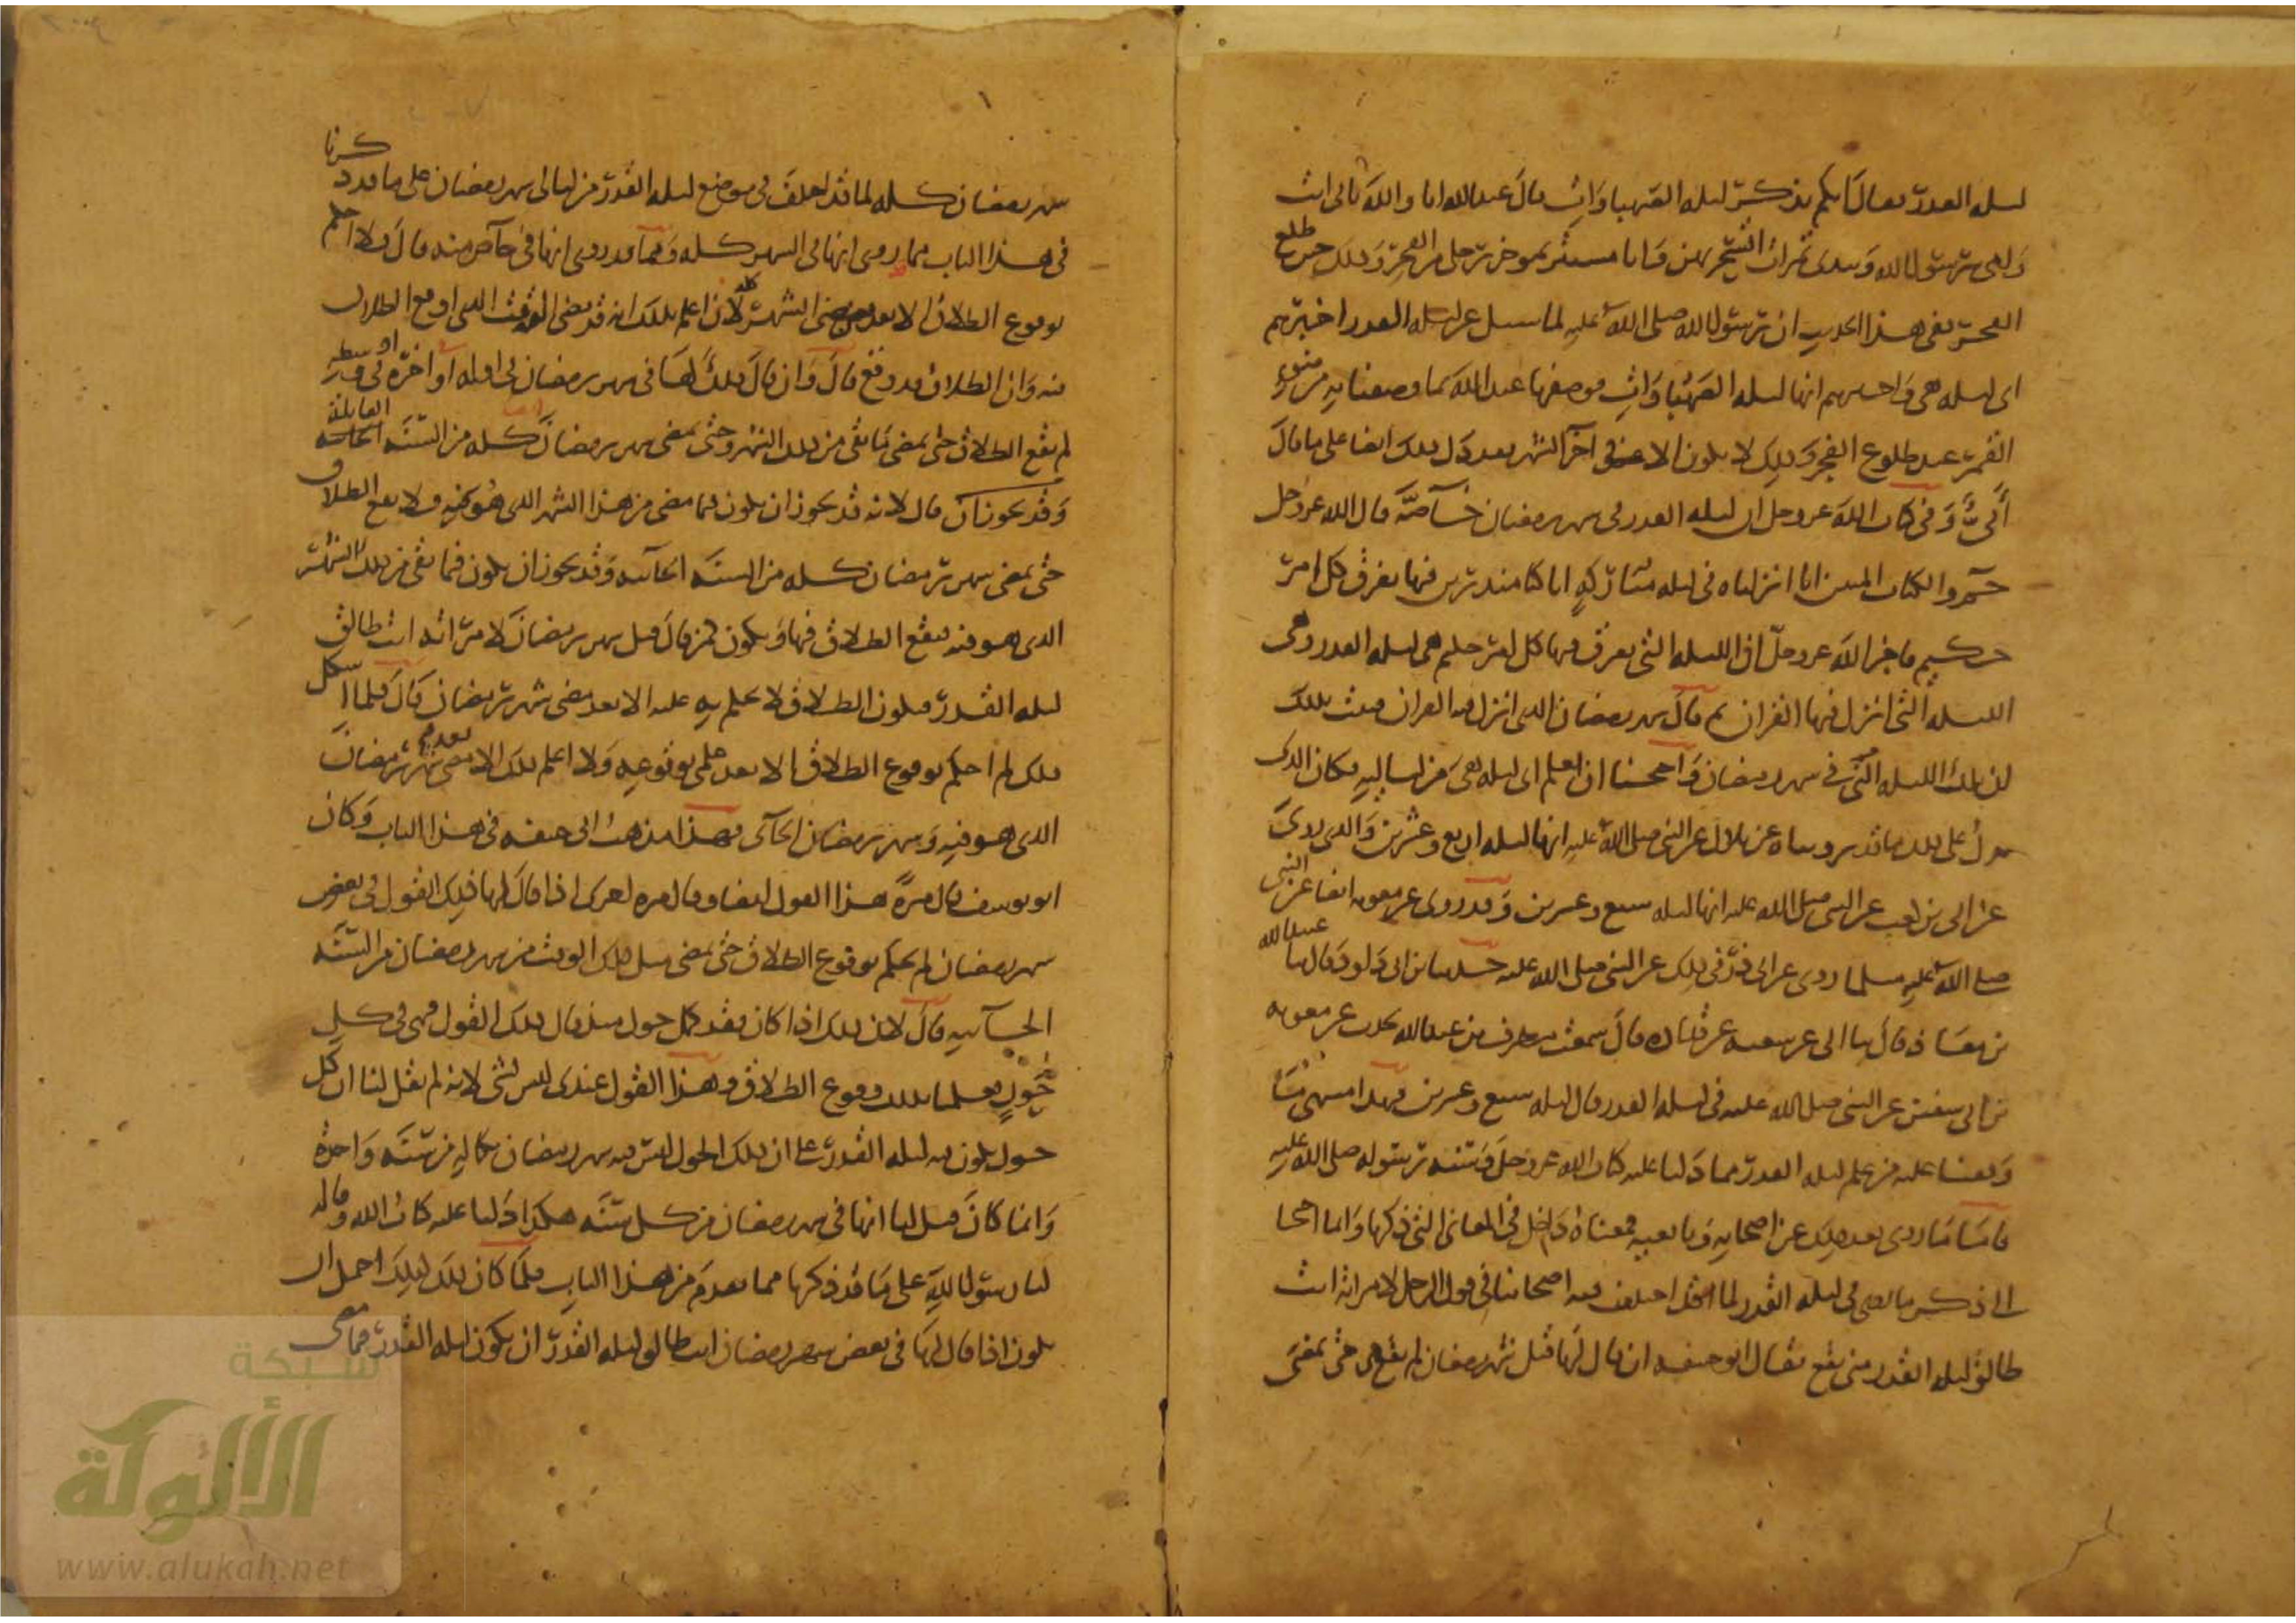 ليله القدر فقال ايكم يذكر ليله الصهباوات قال عبد الله انا والله بابي انت
وامي يرسول الله وبيدي تمرات اتسحر بهن وانا مستتر بموخرة رحلي من الفجر وذلك حين طلع
الفجر ففي هذا الحديث ان رسول الله صلى الله عليه لما سيل عن ليله القدر اخبرهم
اي ليله هي واخبرهم انها ليله الصهباوات فوصفها عبد الله بما وصفها به من ضوء
القمر عند طلوع الفجر وذلك لا يكون الا في آخر الشهر فقد دل ذلك ايضا على ما قال
أبيّ وفي كتاب الله عز وجل ان ليله القدر في شهر رمضان خآصّة قال الله عز وجل
حم والكتاب المبين انا انزلناه في ليله مباركه انا كنا منذرين فيها يفرق كل امر
حكيم فاخبر الله عز وجل ان الليله التي يفرق فيها كل امر حكيم هي ليله القدر وهي
الليله التي انزل فيها القران ثم قال شهر رمضان الذي انزل فيه القران فثبت بذلك
ان تلك الليله التي في شهر رمضان واحتجنا ان نعلم اي ليله هي من لياليه فكان الذي
يدل على ذلك ما قد رويناه عن بلال عن النبي صلى الله عليه انها ليله اربع وعشرين والذي روي
عن ابي بن كعب عن النبي صلى الله عليه انها ليله سبع وعشرين وقد روي عن معويه ايضا عن النبي
صلى الله عليه مثلما روي عن ابي في ذلك عن النبي صلى الله عليه حدثنا بن ابي داود قال ثنا عبيد الله
بن معاذ قال ثنا ابي عن شعبه عن قتاده قال سمعت مطرف بن عبد الله يحدث عن معويه
بن ابي سفين عن النبي صلى الله عليه في ليله القدر قال ليله سبع وعشرين فهذا منتهى ما
وقفنا عليه من علم ليله القدر مما دلنا عليه كتاب الله عز وجل وسنه رسوله صلى الله عليه
فاما ما روي بعد ذلك عن اصحابه وتابعيهم فمعناه داخل في المعاني التي ذكرنا وانما احتجنا
الى ذكر ما روي في ليله القدر لما قد اختلف فيه اصحابنا في قول الرجل لامراته انت
طالق ليله القدر متى يقع فقال ابو حنيفه ان قال لها قبل شهر رمضان لم يقع حتى يمضي
شهر رمضان كله لما قد اختلف في موضع ليله القدر من ليالي شهر رمضان على ما قد ذكرنا
في هذا الباب مما روي انها في الشهر كله ومما قد روي انها في خاص منه قال فلا احكم
بوقوع الطلاق الا بعد مضي الشهر كله لاني اعلم بذلك انه قد مضى الوقت الذي اوقع الطلاق
فيه وان الطلاق قد وقع قال وان قال ذلك لها في شهر رمضان في اوله او اخره او في وسطه
لم يقع الطلاق حتى يمضي ما بقي من ذلك الشهر وحتى يمضي شهر رمضان كله من السنه القابلة
وقد يجوز ان قال لانه قد يجوز ان يكون فيما مضى من هذا الشهر الذي هو فيه ولا يقع الطلاق
حتى يمضي شهر رمضان كله من السنه الجآئيه وقد يجوز ان يكون فيما بقي من ذلك الشهر
الذي هو فيه فيقع الطلاق فيها ويكون كمن قال قبل شهر رمضان لامراته انت طالق
ليله القدر فيكون الطلاق لا يحكم به عليه الا بعد مضي شهر رمضان قال فلما اشكل
ذلك لم احكم بوقوع الطلاق الا بعد علمي بوقوعه ولا اعلم ذلك الا بعد مضي شهر رمضان
الذي هو فيه وشهر رمضان الجآئي فهذا مذهب ابي حنيفه في هذا الباب وكان
ابو يوسف قال مرة هذا القول ايضا وقال مره اخرى اذا قال لها ذلك القول في بعض
شهر رمضان لم يحكم بوقوع الطلاق حتى يمضي مثل ذلك الوقت من شهر رمضان من السنه
الجآئيه قال لان ذلك اذا كان فقد كمل حول منذ قال ذلك القول فهي في كل
حول فعلمنا بذلك وقوع الطلاق وهذا القول عندي ليس بشي لانه لم يقل لنا ان كل
حول يكون فيه ليله القدر على ان ذلك الحول ليس فيه شهر رمضان بكماله من سنه واحدة
وانما كان قيل لنا انها في شهر رمضان من كل سنه هكذا دلنا عليه كتاب الله وقاله
لنا رسول الله على ما قد ذكرنا مما تقدم من هذا الباب فلما كان ذلك كذلك احتمل ان
يكون اذا قال لها في بعض شهر رمضان انت طالق ليله القدر ان يكون ليله القدر فيما مضى
شبكة
الألوكة
www.alukah.net